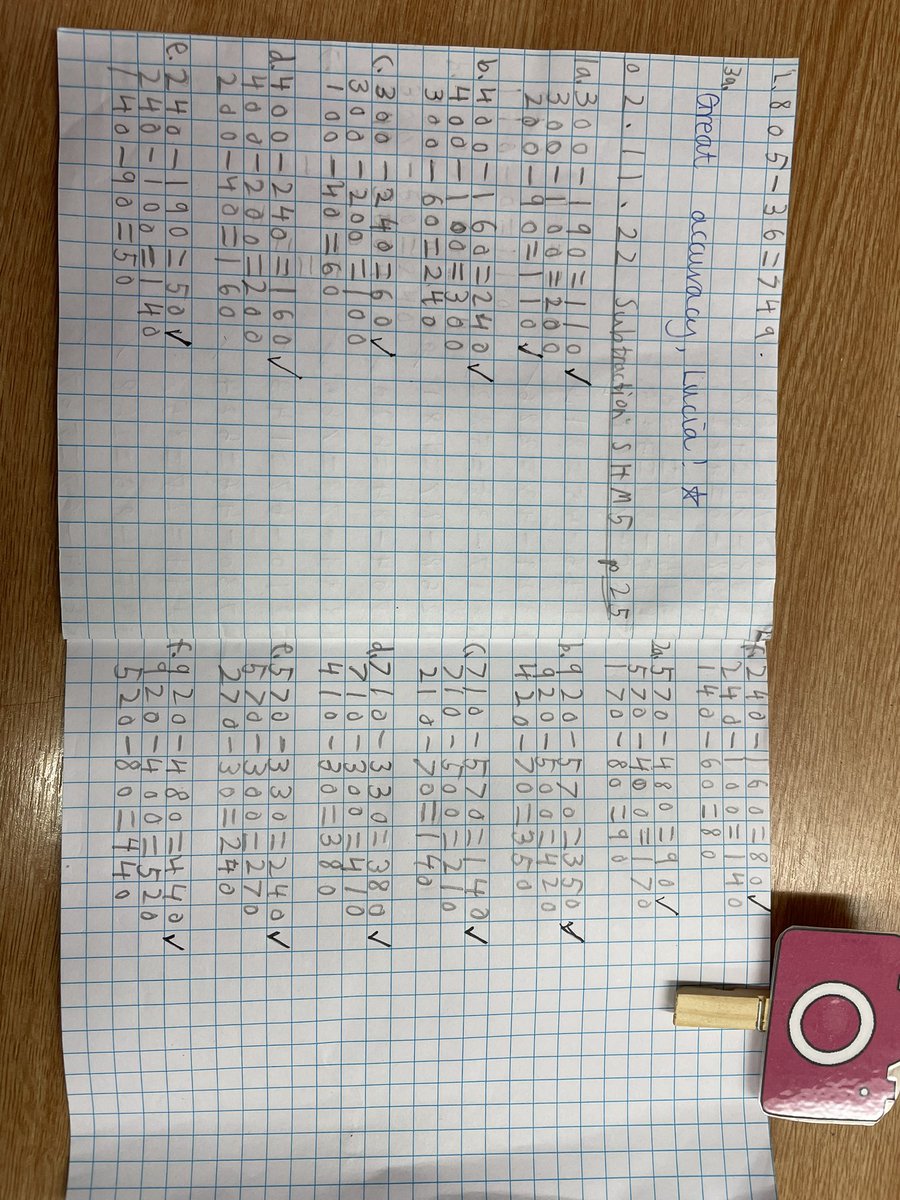 h. 805-36=749.
3a.
Great accuracy, Lucia! ☆
02.11.22 Subtraction SHM5 p25
1a. 300-190=110 ✓
300-100=200
200-90=110 ✓
b. 400-160=240 ✓
400-100=300
300-60=240
c. 300-240=60 ✓
300-200=100
100-40=60
d. 400-240=160 ✓
400-200=200
200-40=160
e. 240-190=50 ✓
240-100=140
140-90=50
f. 240-160=80 ✓
240-100=140
140-60=80
2a. 570-480=90 ✓
570-400=170
170-80=90
b. 920-570=350 ✓
920-500=420
420-70=350
c. 710-570=140 ✓
710-500=210
210-70=140
d. 710-330=380 ✓
710-300=410
410-30=380
e. 570-330=240 ✓
570-300=270
270-30=240
f. 920-480=440 ✓
920-400=520
520-80=440